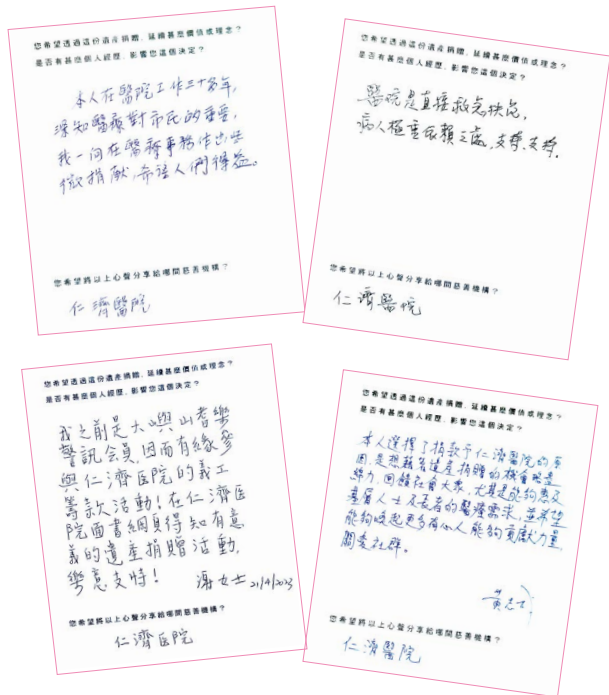 您希望透過這份遺產捐贈，延續甚麼價值或理念？
是否有甚麼個人經歷，影響您這個決定？
本人在醫院工作三十多年，
深知醫療對市民的重要，
我一向在醫療事務作出些
微捐獻，希望人們得益。
您希望將以上心聲分享給哪間慈善機構？
仁濟醫院
您希望透過這份遺產捐贈，延續甚麼價值或理念？
是否有甚麼個人經歷，影響您這個決定？
醫院是直接救急扶危，
病人極重依賴之處，支持，支持，
您希望將以上心聲分享給哪間慈善機構？
仁濟醫院
您希望透過這份遺產捐贈，延續甚麼價值或理念？
是否有甚麼個人經歷，影響您這個決定？
我之前是大嶼山耆樂
警訊会員，因而有緣參
與仁濟医院的義工
籌款活動！在仁濟医
院面書網頁得知有意
義的遺產捐贈活動，
樂意支持！ 馮女士 21/4/2023
您希望將以上心聲分享給哪間慈善機構？
仁濟医院
您希望透過這份遺產捐贈，延續甚麼價值或理念？
是否有甚麼個人經歷，影響您這個決定？
本人選擇了捐款予仁濟醫院的原
因，是想藉着遺產捐贈的機會略盡
綿力，回饋社會大眾，尤其是能夠惠及
基層人士及長者的醫療需求，並希望
能夠喚起更多有心人能夠貢獻力量，
關愛社群。
您希望將以上心聲分享給哪間慈善機構？
仁濟醫院